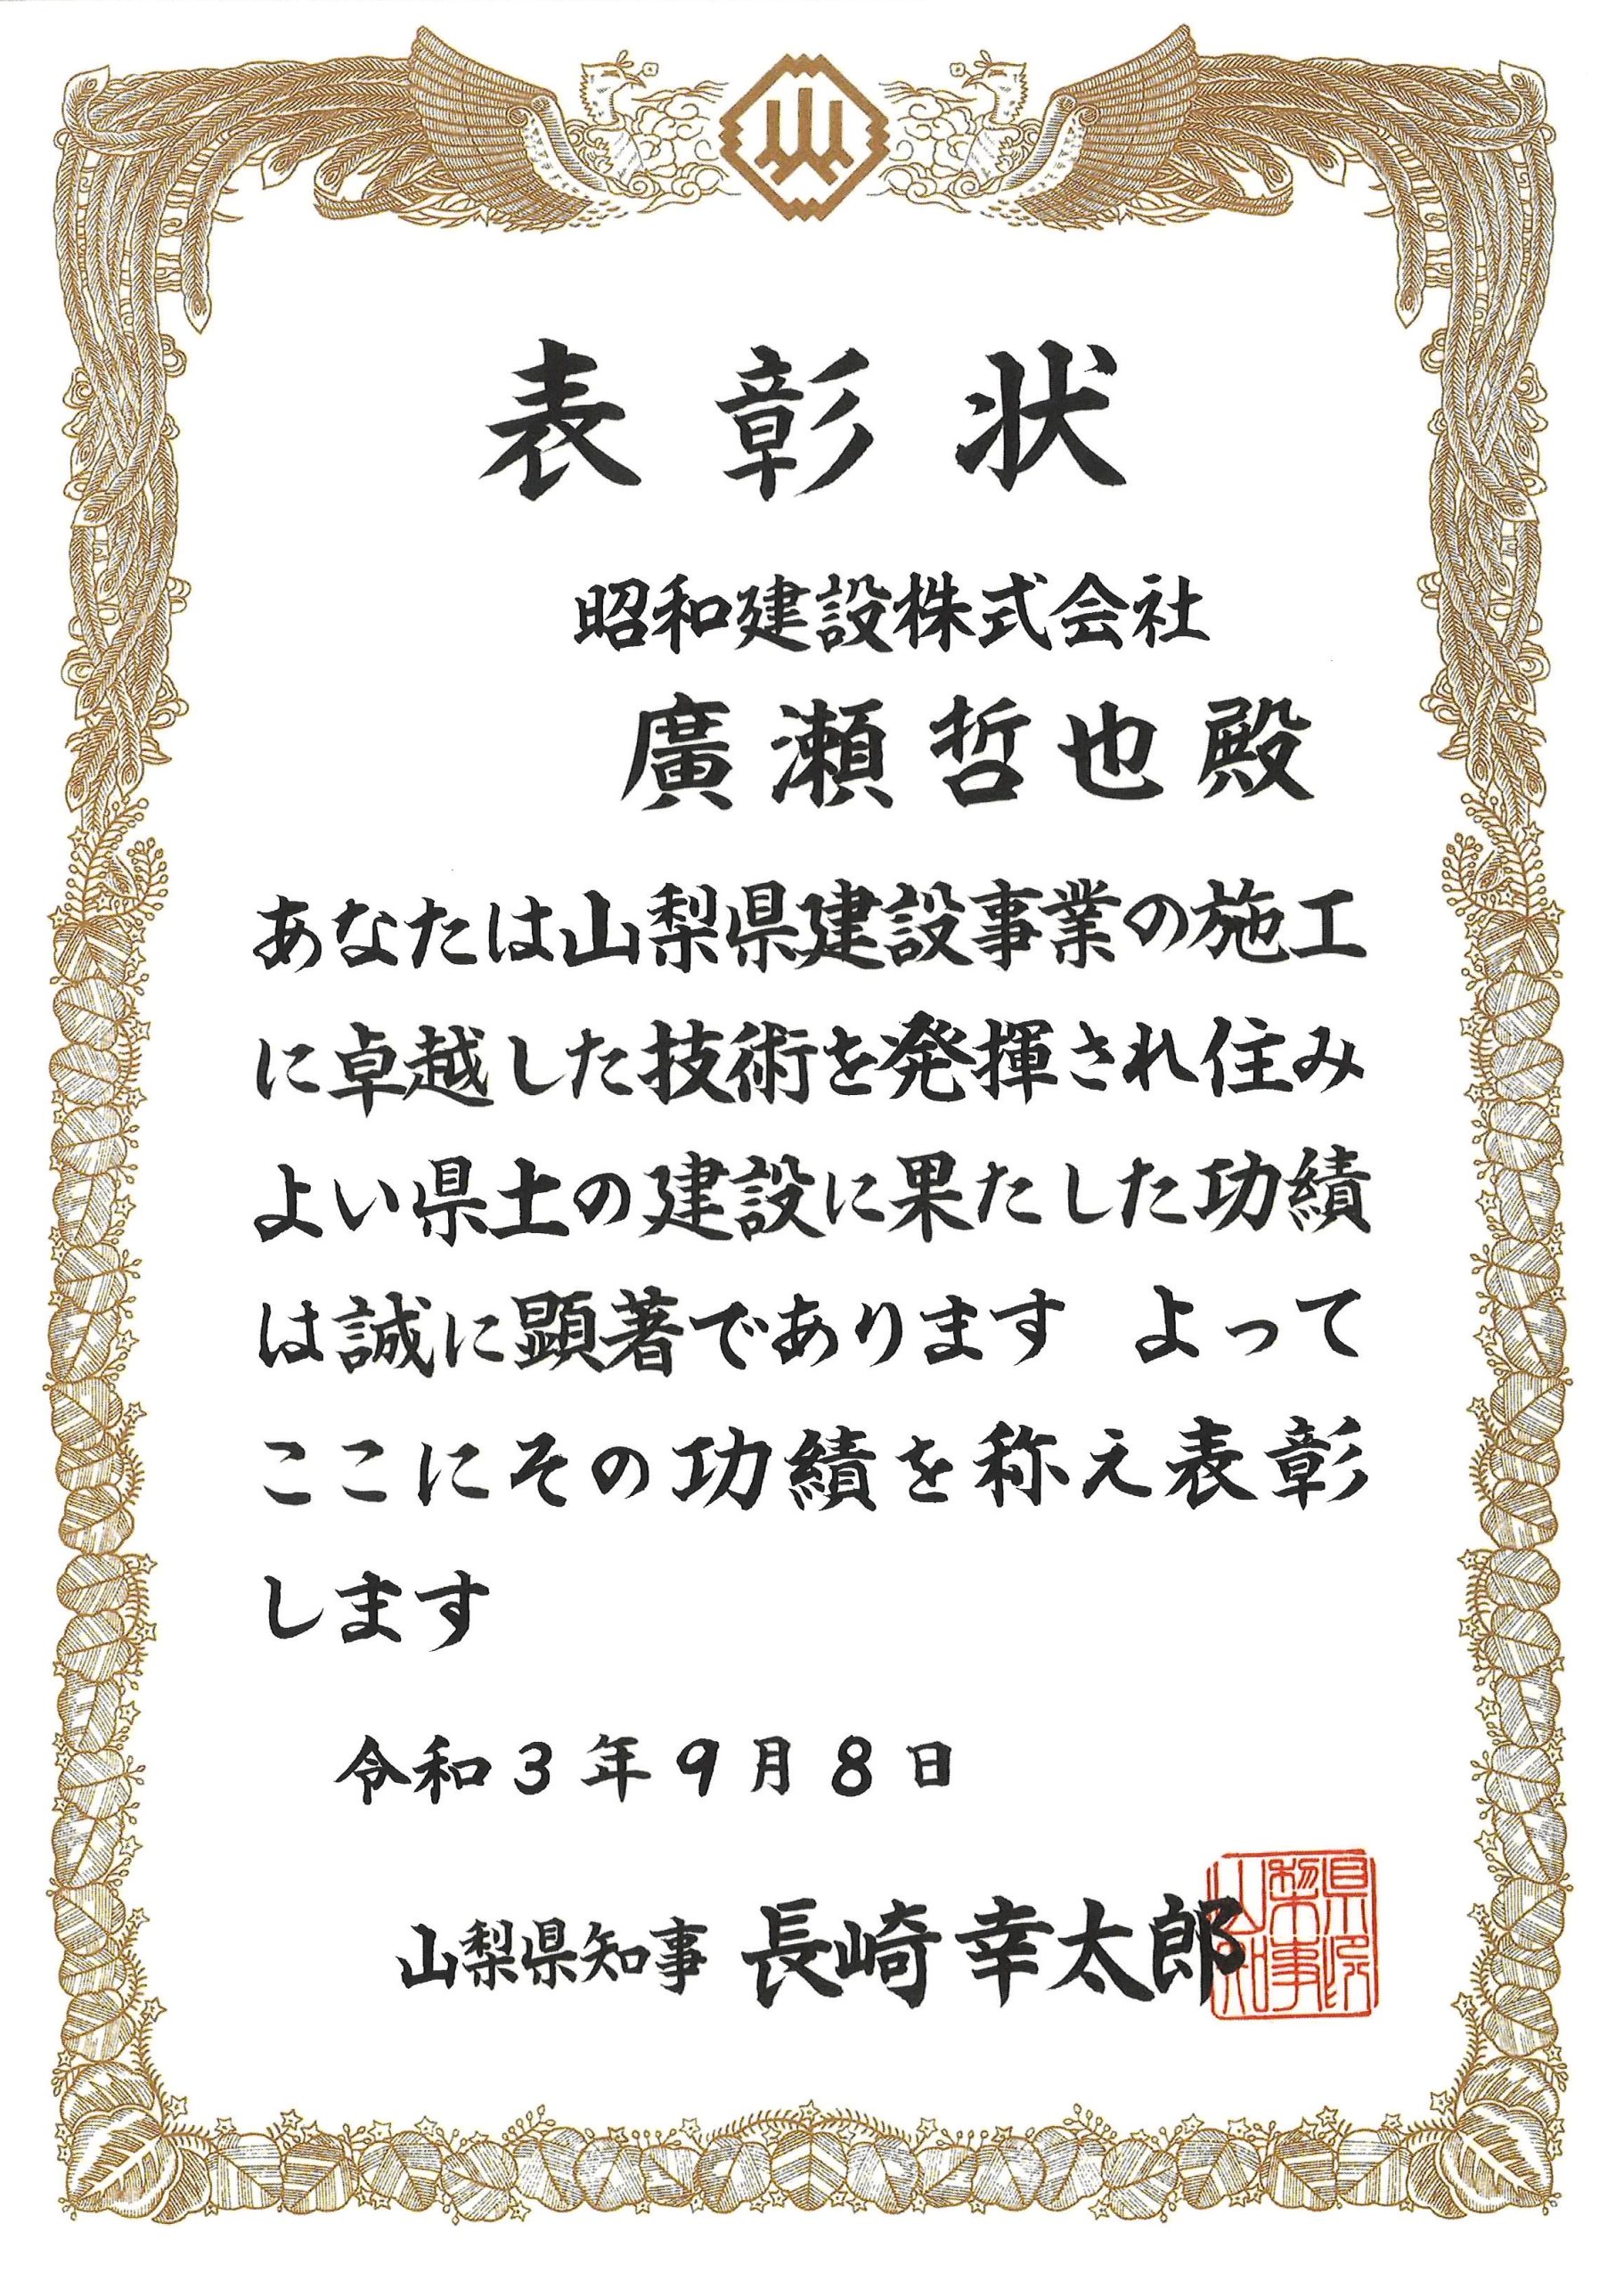 表彰状
昭和建設株式会社
廣瀬哲也殿
あなたは山梨県建設事業の施工
に卓越した技術を発揮され住み
よい県土の建設に果たした功績
は誠に顕著であります よって
ここにその功績を称え表彰
します
令和3年9月8日
山梨県知事 長崎幸太郎